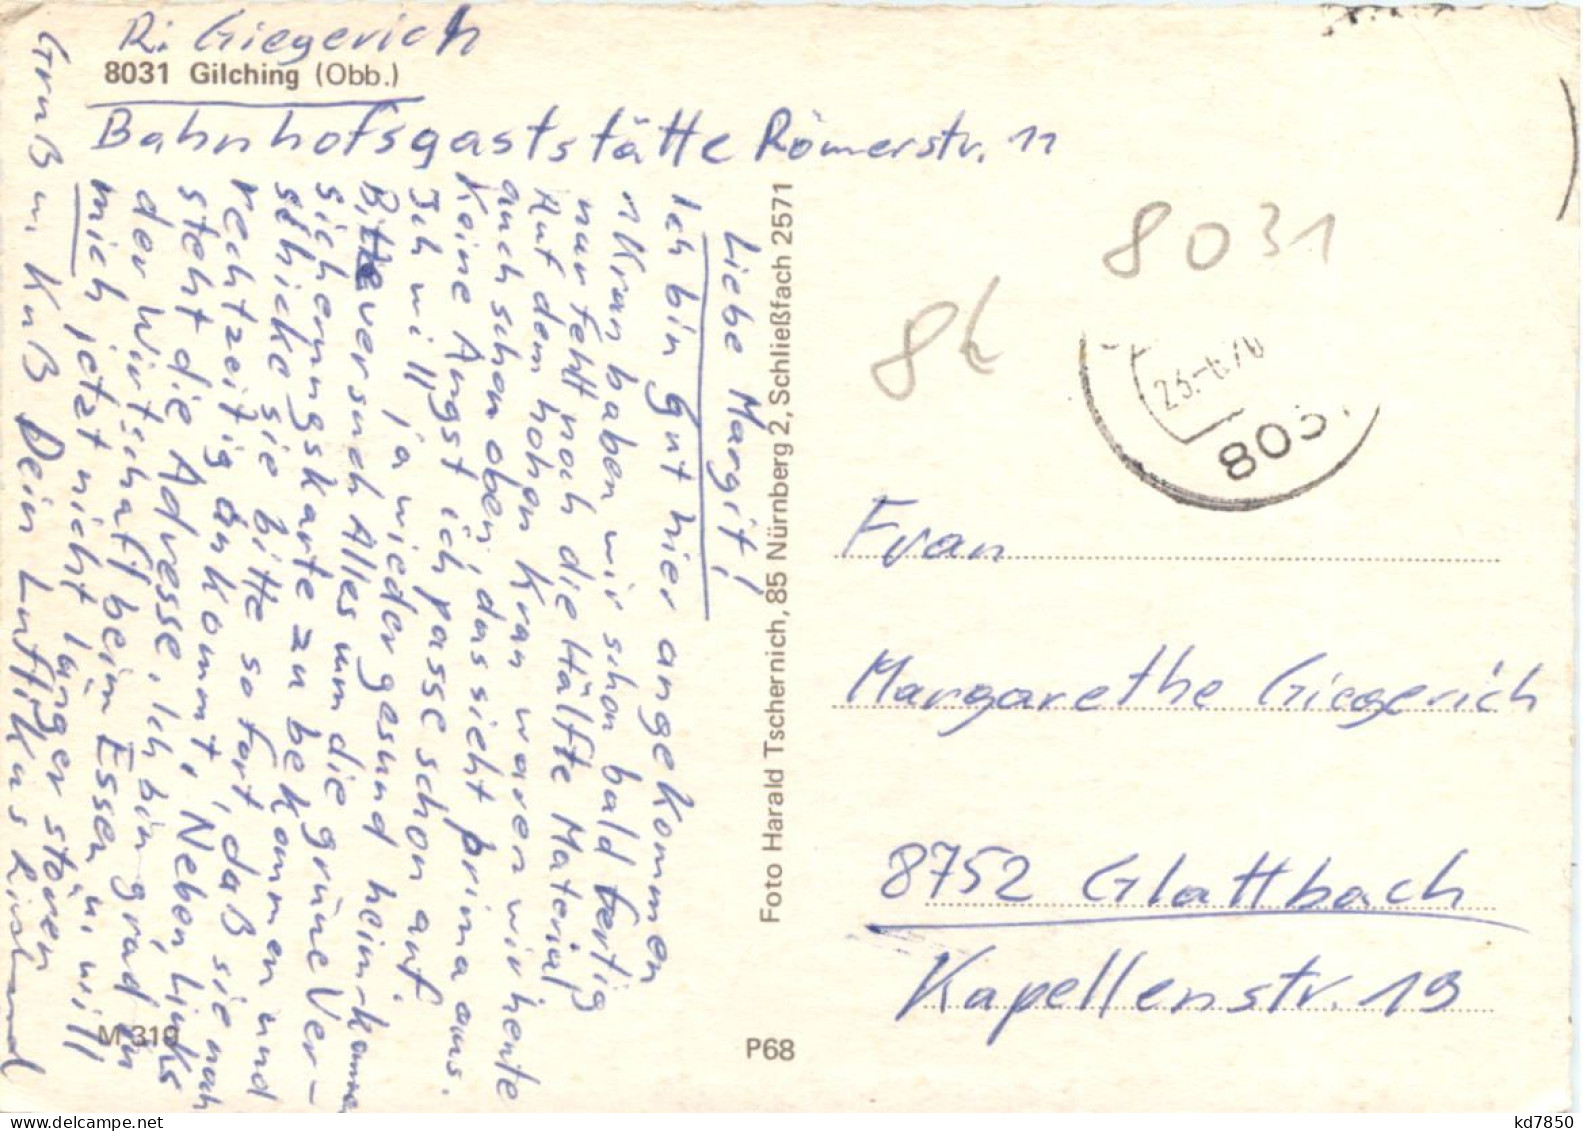 R. Giegerich
8031 Gilching (Obb.)
Bahnhofsgaststätte Römerstr. 11
Liebe Margit!
Ich bin gut hier angekommen
1 Kran haben wir schon bald fertig
nur fehlt noch die Hälfte Material
Auf dem hohen Kran waren wir heute
auch schon oben, das sieht prima aus.
Keine Angst ich passe schon auf.
Ich will ja wieder gesund heim-
kommen
Bitte versuch Alles um die grüne Ver-
sicherungskarte zu bekommen und
schicke sie bitte sofort, daß sie noch
rechtzeitig ankommt, Neben links
steht die Adresse. Ich bin grad in
der Wirtschaft beim Essen u. will
mich jetzt nicht länger stören
Gruß u. Kuß Dein Luftikus
Foto Harald Tschernich, 85 Nürnberg 2, Schließfach 2571
M 319
P68
8031
8
803
Frau
Margarethe Giegerich
8752 Glattbach
Kapellenstr. 19
kd7850